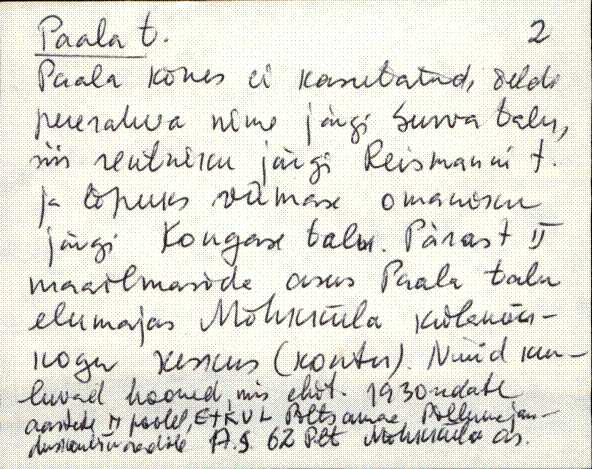 Paala t. 2
Paala kõnes ei kasutatud, öeldi
pererahva nime järgi Surva talu,
siis rentniku järgi Reismanni t.
ja lõpuks viimase omaniku
järgi Kongase talu. Pärast II
maailmasõda asus Paala talu
elumajas Mõhkküla külanõu-
kogu keskus (kontor). Nüüd kuu-
luvad hooned, mis ehit. 1930ndate
aastate II poolel, ETKVL Põltsamaa Põllumajan-
A.S. 62 Plt Mõhkküla as.